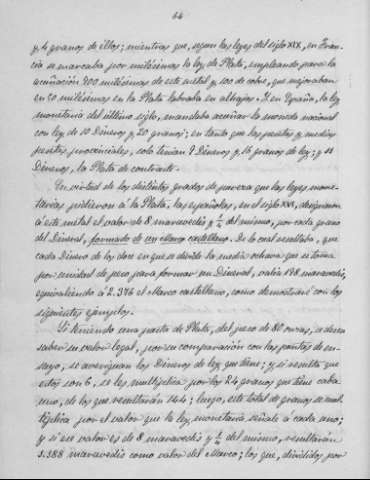 64
y 4 granos de ellos; mientras que, segun las leyes del siglo XIX, en Fran-
cia se marcaba por milésimas la ley de Plata, empleando para la
acuñación 900 milésimas de este metal y 100 de cobre, que mejoraban
en 50 milésimas en la Plata labrada en alhajas. Y, en España, la ley
monetaria del último siglo, mandaba acuñar la moneda nacional
con ley de 10 Dineros y 20 granos; en tanto que las pesetas y medias
pesetas provinciales, solo tenían 9 Dineros y 16 granos de ley; y 11
Dineros, la Plata de contraste.
En virtud de los distintos grados de pureza que las leyes mone-
tarias pidieron á la Plata, las españolas, en el siglo XVI, designaron
á este metal el valor de 8 maravedís y ¼ del mismo, por cada grano
del Dineral, formado de un Marco castellano. De lo cual resultaba, que
cada Dinero de los doce en que se divide la media ochava que se toma
por unidad de peso para formar un Dineral, valía 198 maravedís,
equivaliendo á 2.376 el Marco castellano, como demostraré con los
siguientes ejemplos.
Si teniendo una pasta de Plata, del peso de 80 onzas, se desea
saber su valor legal, por su comparación con las puntas de en-
sayo, se averiguan los Dineros de ley que tiene; y si resulta que
estos son 6, se les multiplica por los 24 granos que tiene cada
uno, de los que resultarán 144; luego, este total de granos se mul-
tiplica por el valor que la ley monetaria señale á cada uno;
y si ese valor es de 8 maravedís y ¼ del mismo, resultarán
1.188 maravedís como valor del Marco; los que, divididos por